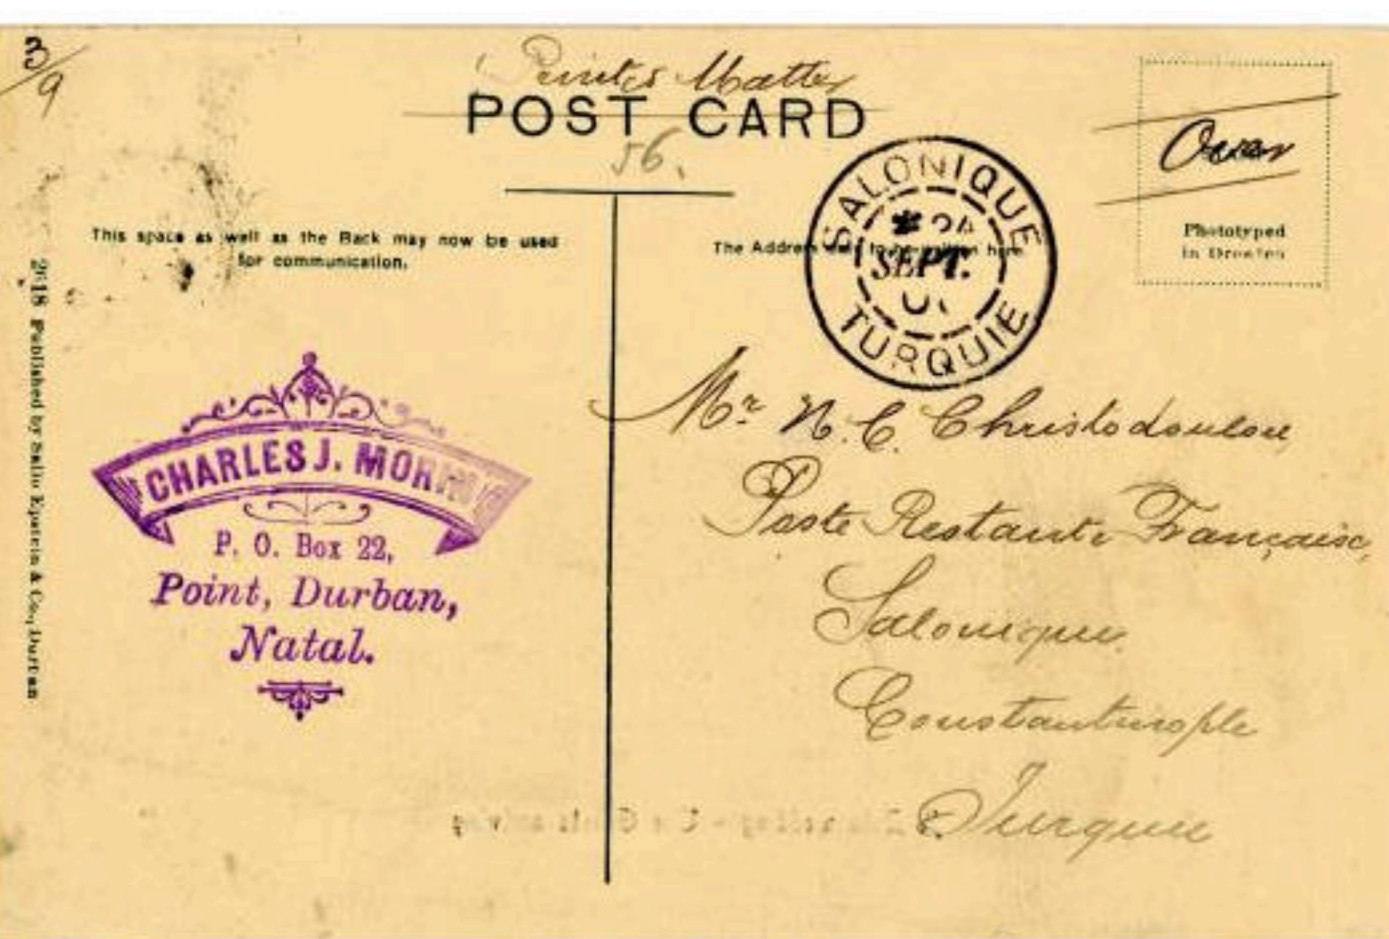 3/9
Printed Matter
POST CARD
56.
Over
Phototyped
in Dresden
This space as well as the Back may now be used
for communication.
The Address only to be written here.
SALONIQUE
24
SEPT.
TURQUIE
2618 Published by Sallo Epstein & Co., Durban
CHARLES J. MORR
P. O. Box 22,
Point, Durban,
Natal.
Mr N. C. Christodoulou
Poste Restante Française,
Salonique
Constantinople
Turquie